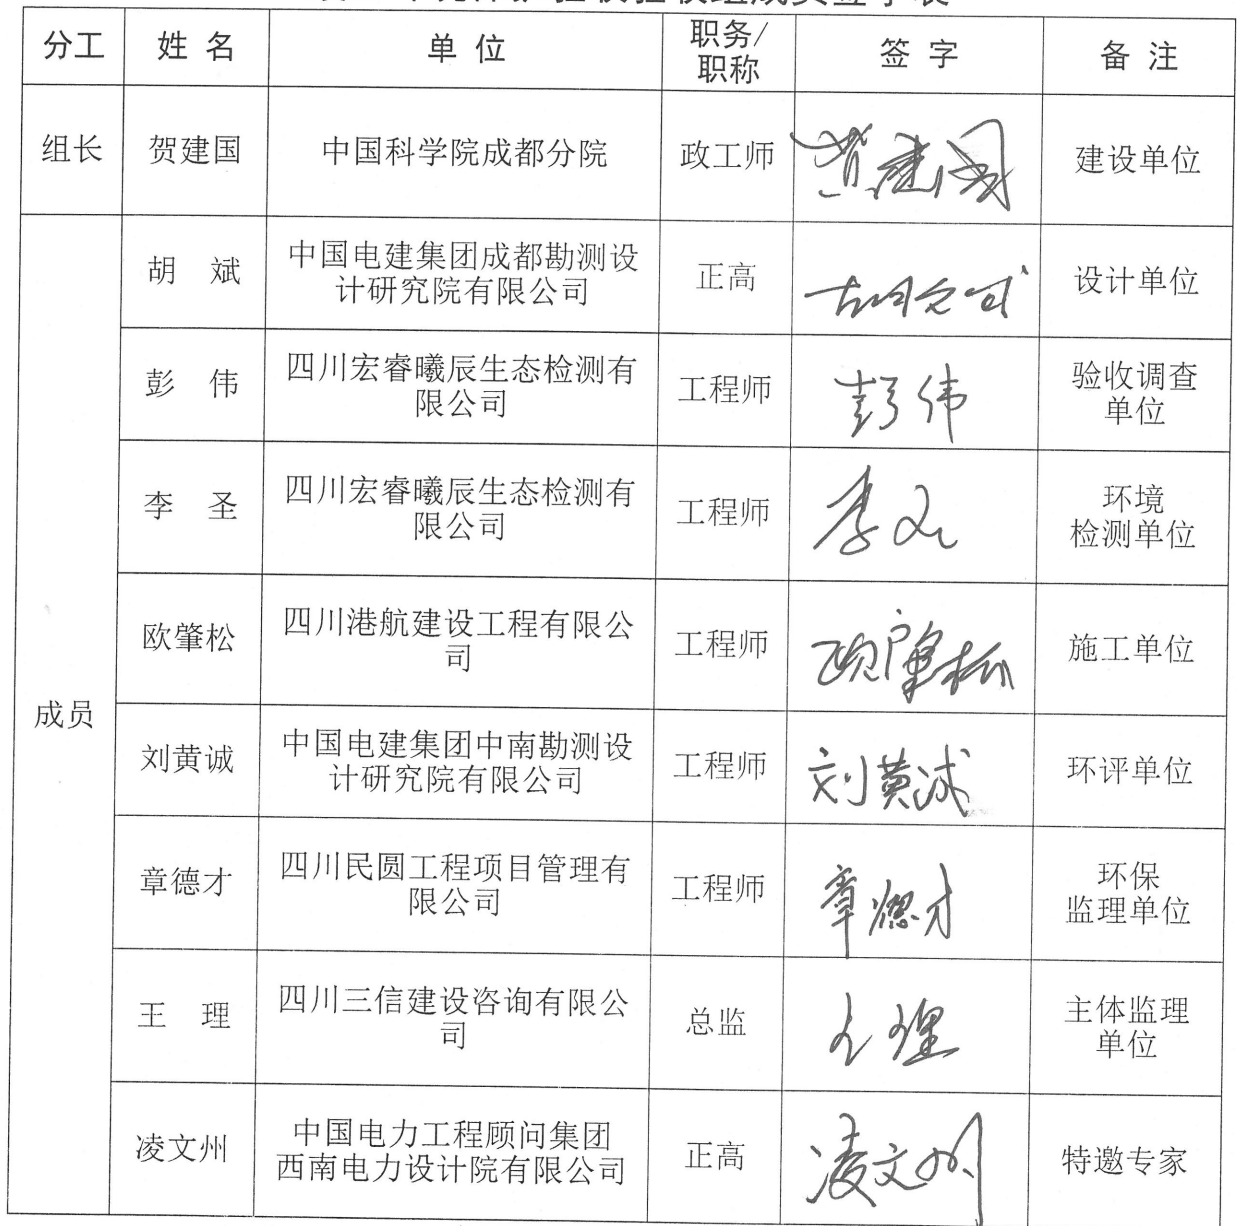 分工 姓名 单位 职务/职称 签字 备注
组长 贺建国 中国科学院成都分院 政工师 贺建国 建设单位
成员
胡 斌 中国电建集团成都勘测设计研究院有限公司 正高 胡斌 设计单位
彭 伟 四川宏睿曦辰生态检测有限公司 工程师 彭伟 验收调查单位
李 圣 四川宏睿曦辰生态检测有限公司 工程师 李圣 环境检测单位
欧肇松 四川港航建设工程有限公司 工程师 欧肇松 施工单位
刘黄诚 中国电建集团中南勘测设计研究院有限公司 工程师 刘黄诚 环评单位
章德才 四川民圆工程项目管理有限公司 工程师 章德才 环保监理单位
王 理 四川三信建设咨询有限公司 总监 王理 主体监理单位
凌文州 中国电力工程顾问集团西南电力设计院有限公司 正高 凌文州 特邀专家